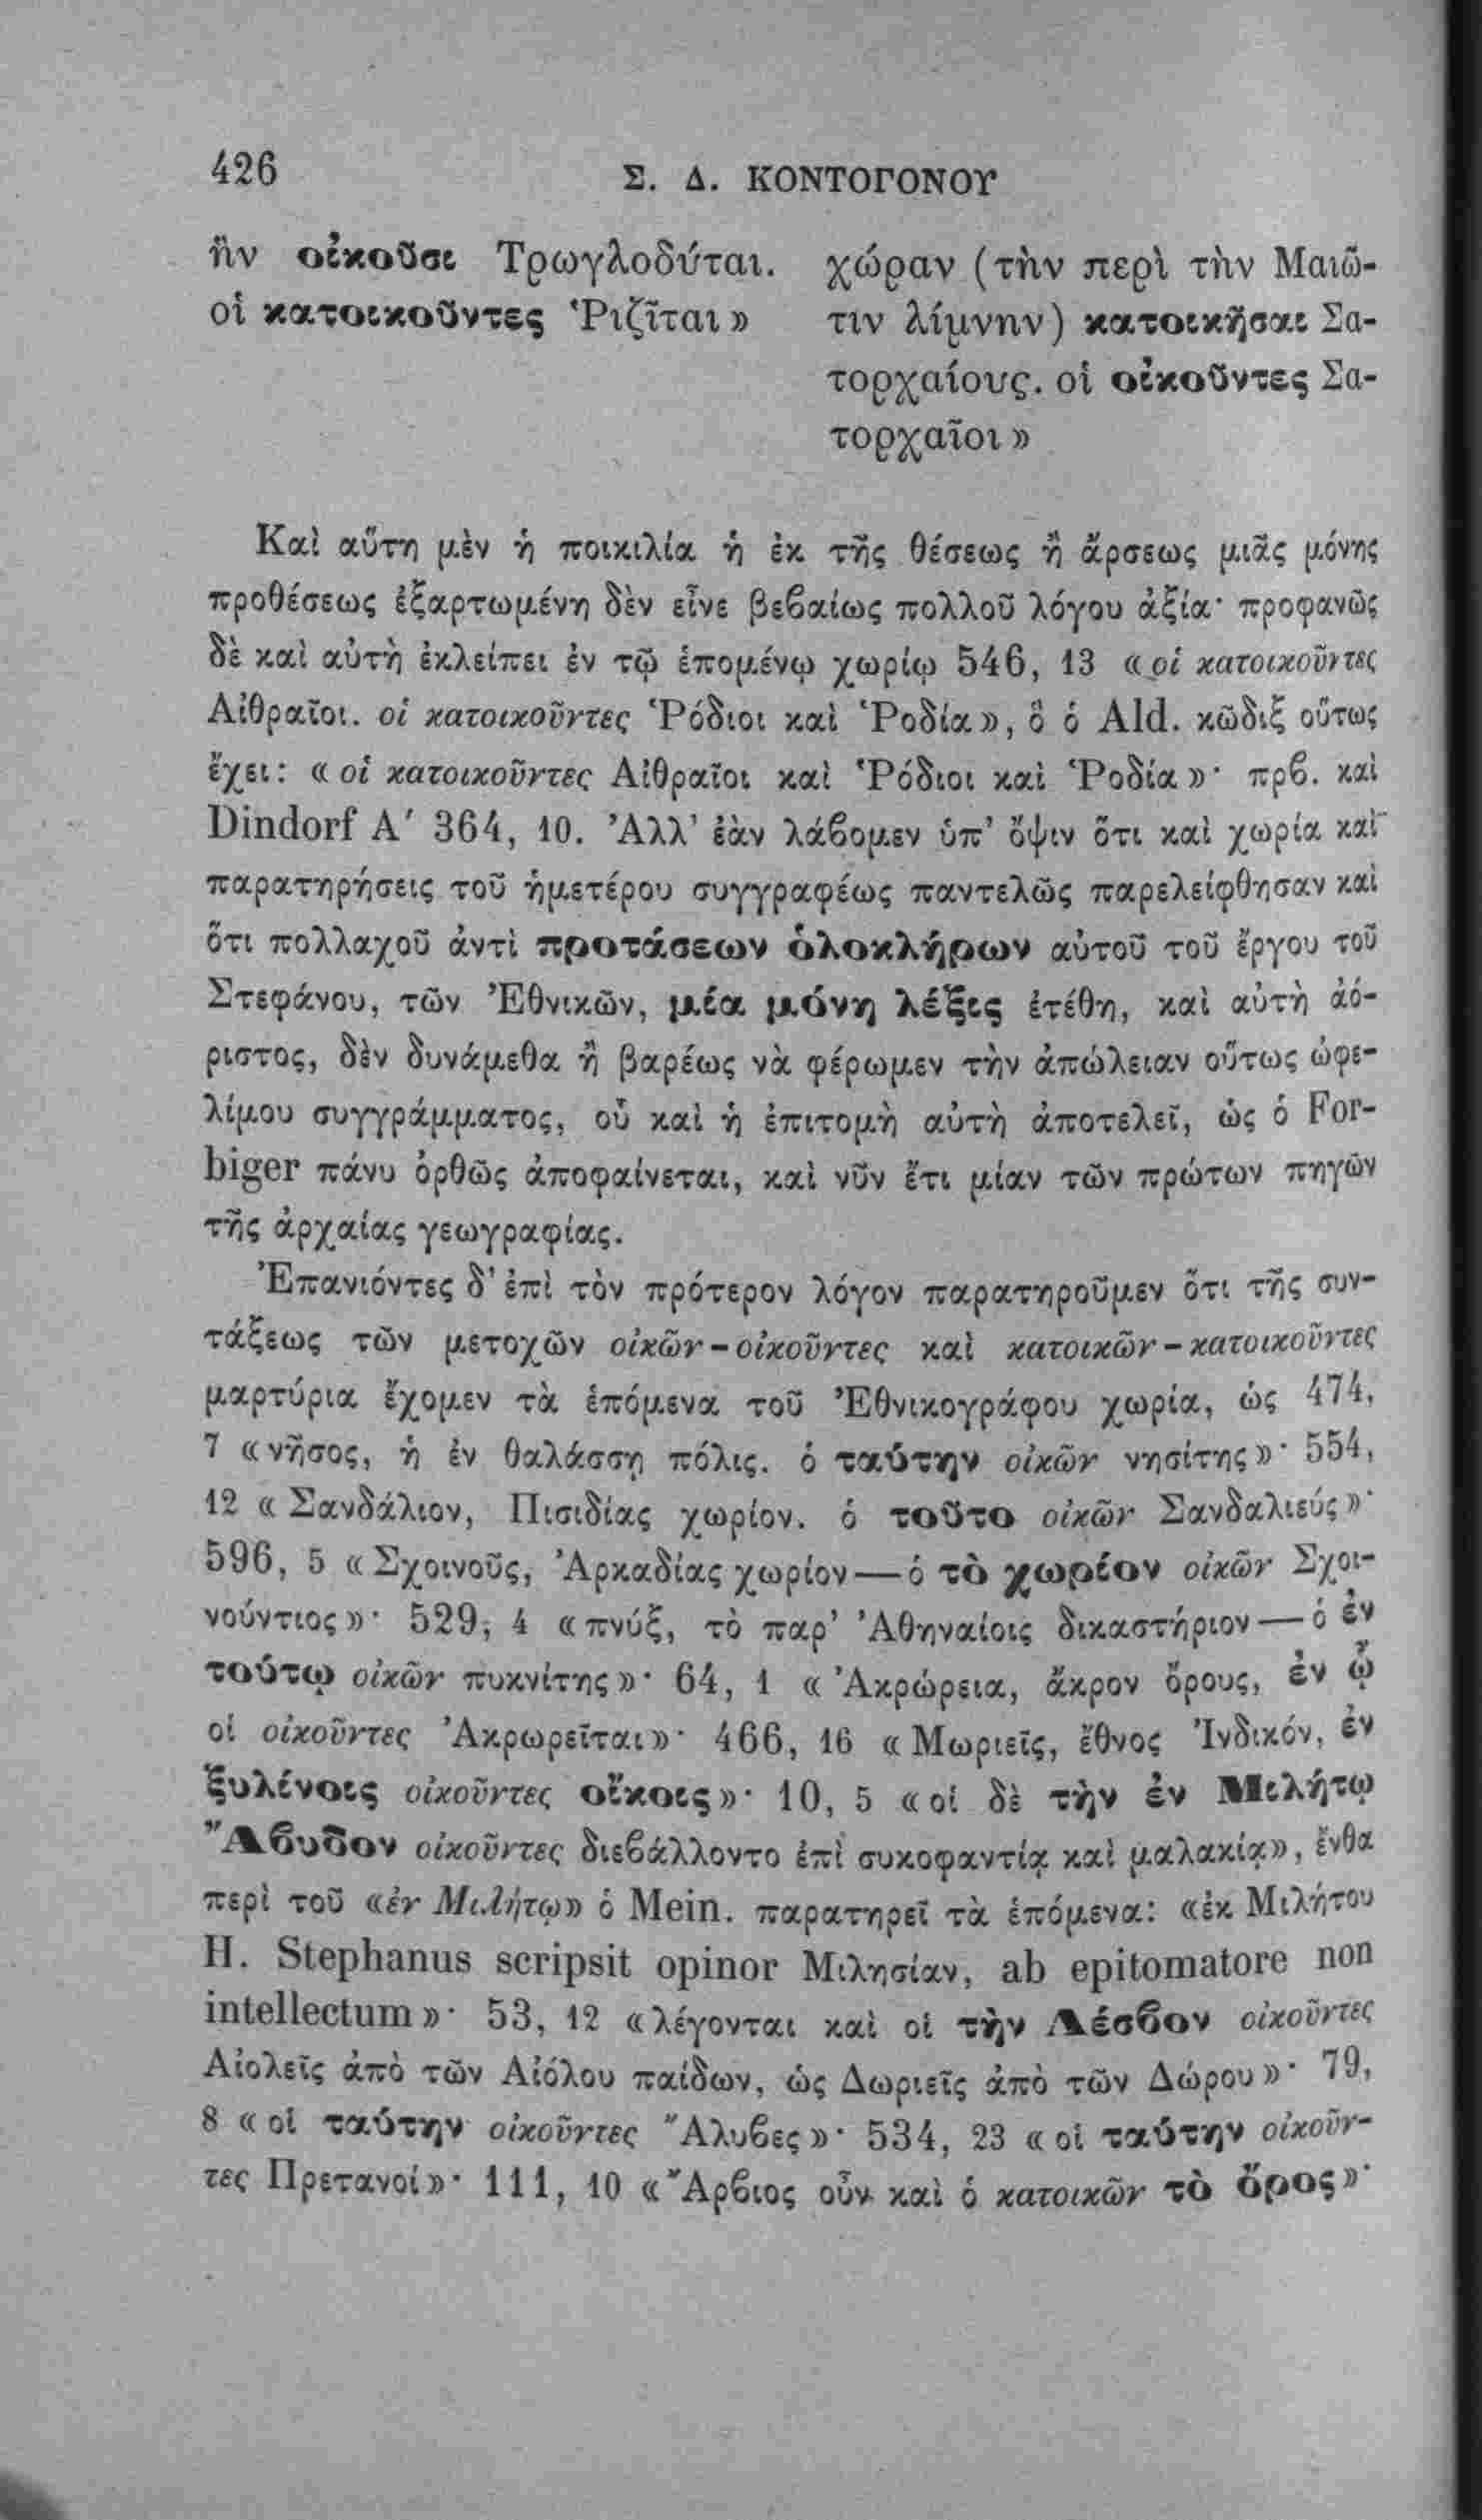 426
Σ. Δ. ΚΟΝΤΟΓΟΝΟΥ
ἣν οἰκοῦσι Τρωγλοδύται.
οἱ κατοικοῦντες Ῥιζῖται»
χώραν (τὴν περὶ τὴν Μαιῶ-
τιν λίμνην) κατοικῆσαι Σα-
τορχαίους. οἱ οἰκοῦντες Σα-
τορχαῖοι»
Καὶ αὕτη μὲν ἡ ποικιλία ἡ ἐκ τῆς θέσεως ἢ ἄρσεως μιᾶς μόνης
προθέσεως ἐξαρτωμένη δὲν εἶνε βεβαίως πολλοῦ λόγου ἀξία· προφανῶς
δὲ καὶ αὐτὴ ἐκλείπει ἐν τῷ ἑπομένῳ χωρίῳ 546, 13 «οἱ κατοικοῦντες
Αἰθραῖοι. οἱ κατοικοῦντες Ῥόδιοι καὶ Ῥοδία», ὃ ὁ Ald. κῶδιξ οὕτως
ἔχει: «οἱ κατοικοῦντες Αἰθραῖοι καὶ Ῥόδιοι καὶ Ῥοδία»· πρβ. καὶ
Dindorf Α′ 364, 10. Ἀλλ’ ἐὰν λάβομεν ὑπ’ ὄψιν ὅτι καὶ χωρία καὶ
παρατηρήσεις τοῦ ἡμετέρου συγγραφέως παντελῶς παρελείφθησαν καὶ
ὅτι πολλαχοῦ ἀντὶ προτάσεων ὁλοκλήρων αὐτοῦ τοῦ ἔργου τοῦ
Στεφάνου, τῶν Ἐθνικῶν, μία μόνη λέξις ἐτέθη, καὶ αὐτὴ ἀό-
ριστος, δὲν δυνάμεθα ἢ βαρέως νὰ φέρωμεν τὴν ἀπώλειαν οὕτως ὠφε-
λίμου συγγράμματος, οὗ καὶ ἡ ἐπιτομὴ αὐτὴ ἀποτελεῖ, ὡς ὁ For-
biger πάνυ ὀρθῶς ἀποφαίνεται, καὶ νῦν ἔτι μίαν τῶν πρώτων πηγῶν
τῆς ἀρχαίας γεωγραφίας.
Ἐπανιόντες δ’ ἐπὶ τὸν πρότερον λόγον παρατηροῦμεν ὅτι τῆς συν-
τάξεως τῶν μετοχῶν οἰκῶν - οἰκοῦντες καὶ κατοικῶν - κατοικοῦντες
μαρτύρια ἔχομεν τὰ ἑπόμενα τοῦ Ἐθνικογράφου χωρία, ὡς 474,
7 «νῆσος, ἡ ἐν θαλάσσῃ πόλις. ὁ ταύτην οἰκῶν νησίτης»· 554,
12 «Σανδάλιον, Πισιδίας χωρίον. ὁ τοῦτο οἰκῶν Σανδαλιεύς»·
596, 5 «Σχοινοῦς, Ἀρκαδίας χωρίον — ὁ τὸ χωρίον οἰκῶν Σχοι-
νούντιος»· 529, 4 «πνύξ, τὸ παρ’ Ἀθηναίοις δικαστήριον — ὁ ἐν
τούτῳ οἰκῶν πυκνίτης»· 64, 1 «Ἀκρώρεια, ἄκρον ὄρους, ἐν ᾧ
οἱ οἰκοῦντες Ἀκρωρεῖται»· 466, 16 «Μωριεῖς, ἔθνος Ἰνδικόν, ἐν
ξυλίνοις οἰκοῦντες οἴκοις»· 10, 5 «οἱ δὲ τὴν ἐν Μιλήτῳ
Ἄβυδον οἰκοῦντες διεβάλλοντο ἐπὶ συκοφαντίᾳ καὶ μαλακίᾳ», ἔνθα
περὶ τοῦ «ἐν Μιλήτῳ» ὁ Mein. παρατηρεῖ τὰ ἑπόμενα: «ἐκ Μιλήτου
H. Stephanus scripsit opinor Μιλησίαν, ab epitomatore non
intellectum»· 53, 12 «λέγονται καὶ οἱ τὴν Λέσβον οἰκοῦντες
Αἰολεῖς ἀπὸ τῶν Αἰόλου παίδων, ὡς Δωριεῖς ἀπὸ τῶν Δώρου»· 79,
8 «οἱ ταύτην οἰκοῦντες Ἄλυβες»· 534, 23 «οἱ ταύτην οἰκοῦν-
τες Πρετανοί»· 111, 10 «Ἄρβιος οὖν καὶ ὁ κατοικῶν τὸ ὄρος»·